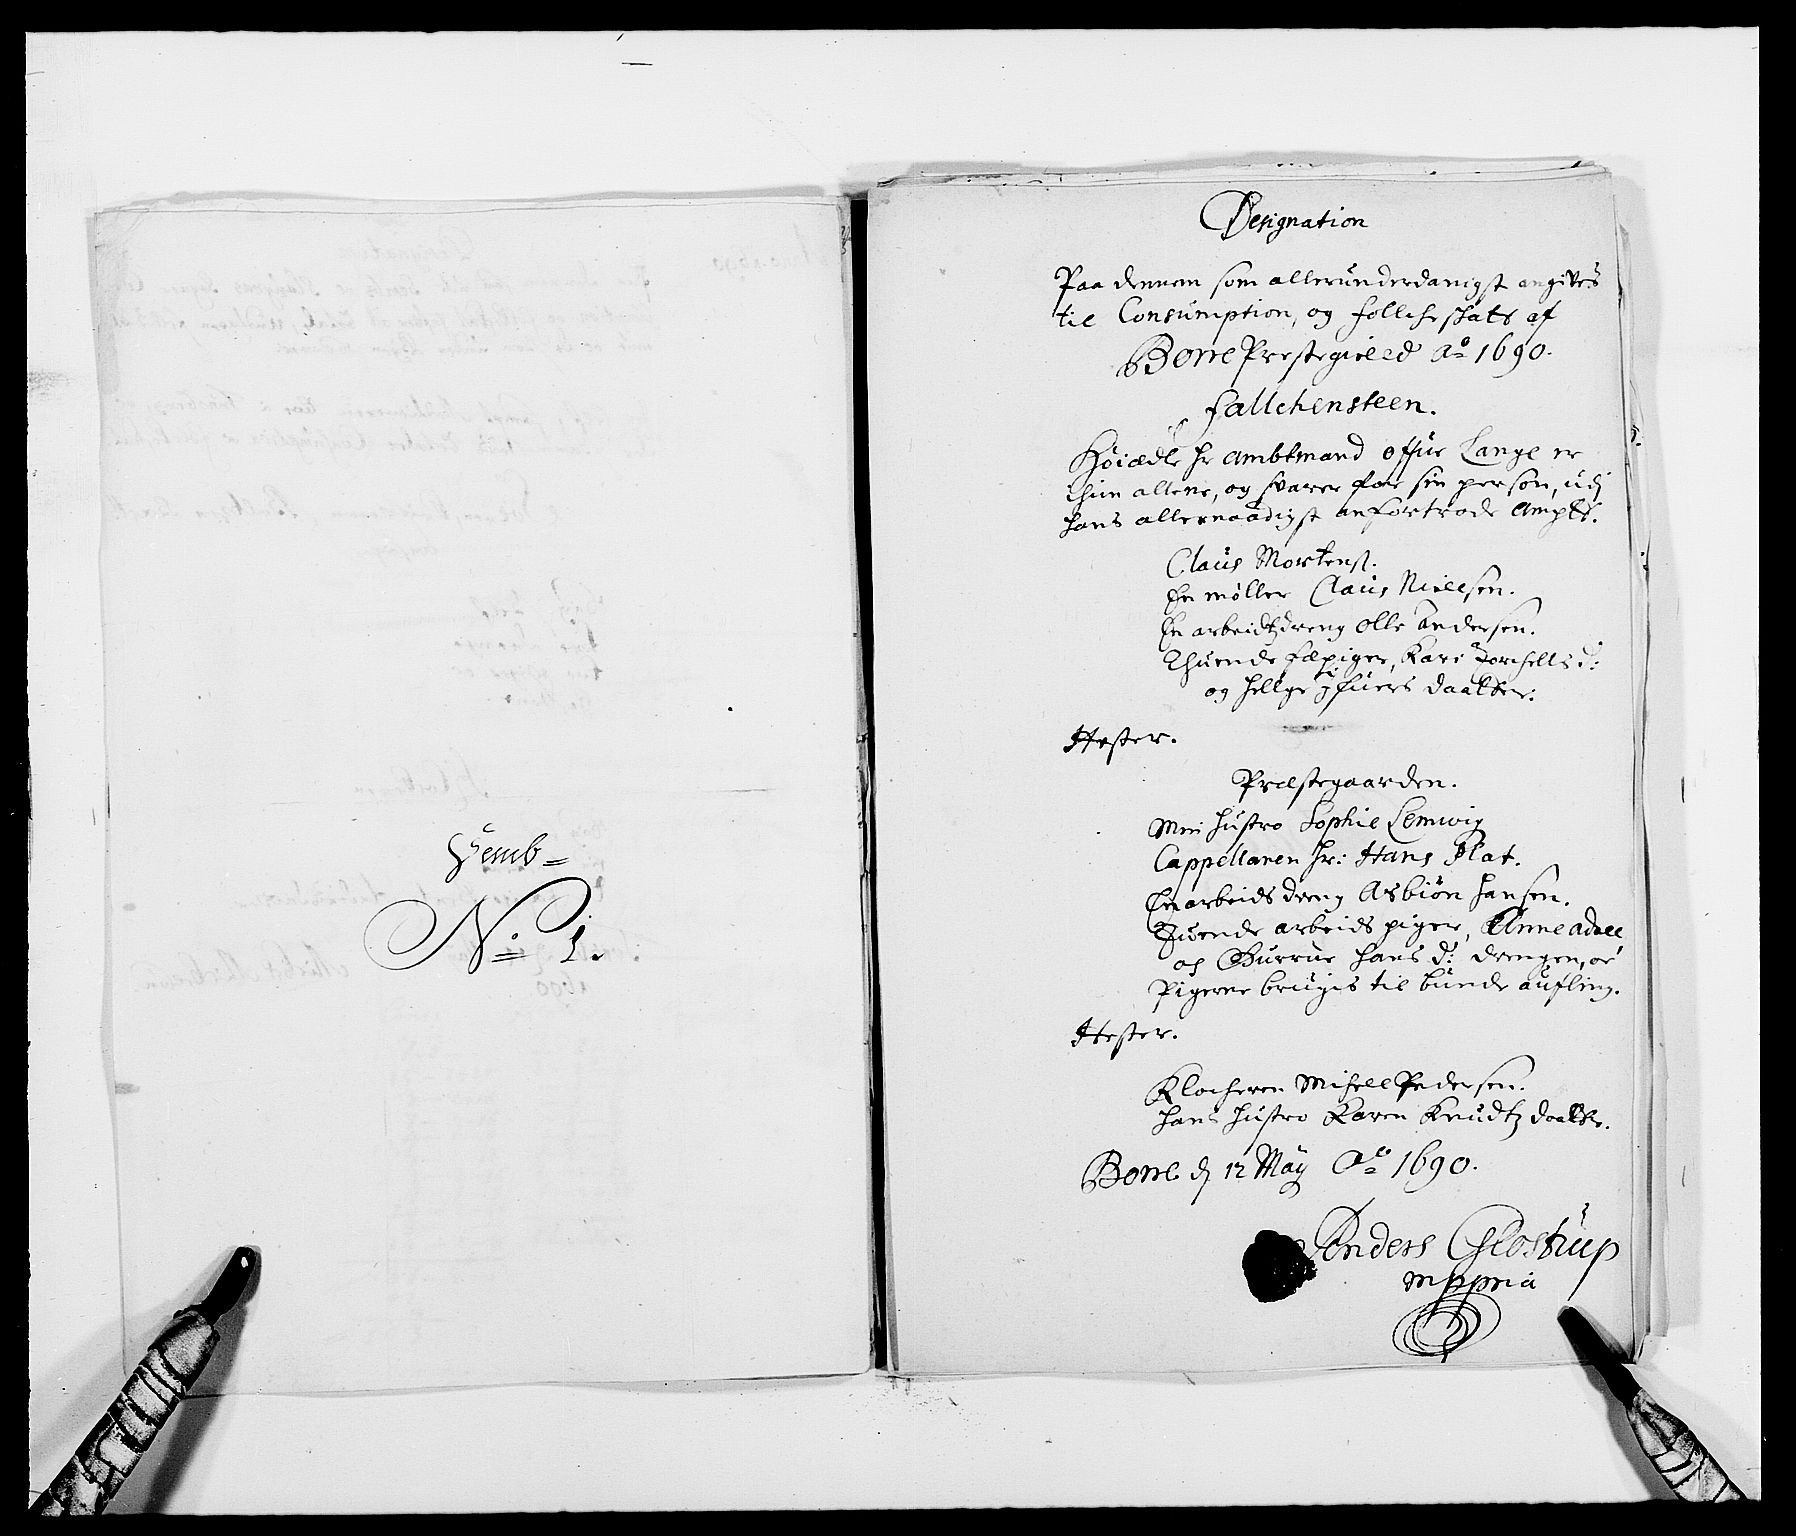 Semb =
No 1.
Designation
Paa dennem som allerunderdanigst angives
til Consumption, og follche skats af
Borre Prestegieled Ao 1690.
Falchensteen.
Höiædle hr ambtmand offue Lange er
chun allene, og svarer for sin person, udj
hans allernaadigst anfortrode Ampt.
Claus Mortens.
En møller Claus Nielsen.
En arbeidtzdreng Olle Andersen.
Thuende fæpiger, Kari Torchells d:
og helge daatter.
Hester.
Præstegaarden.
Min hustro Sophie Lemwig
Cappellanen hr: Hans Plat.
En arbeids dreng Asbiøn Hansen.
Tuende arbeids piger, Anne
og Gurrue Hans d: drengen, oc
Pigerne brugis til bunde aufling.
Hester.
Klocheren Michell Pedersen.
hans hustro Karen Knudtz daatter.
Borre d 12 Maÿ Ao 1690.
Anders Glostrup
mppria